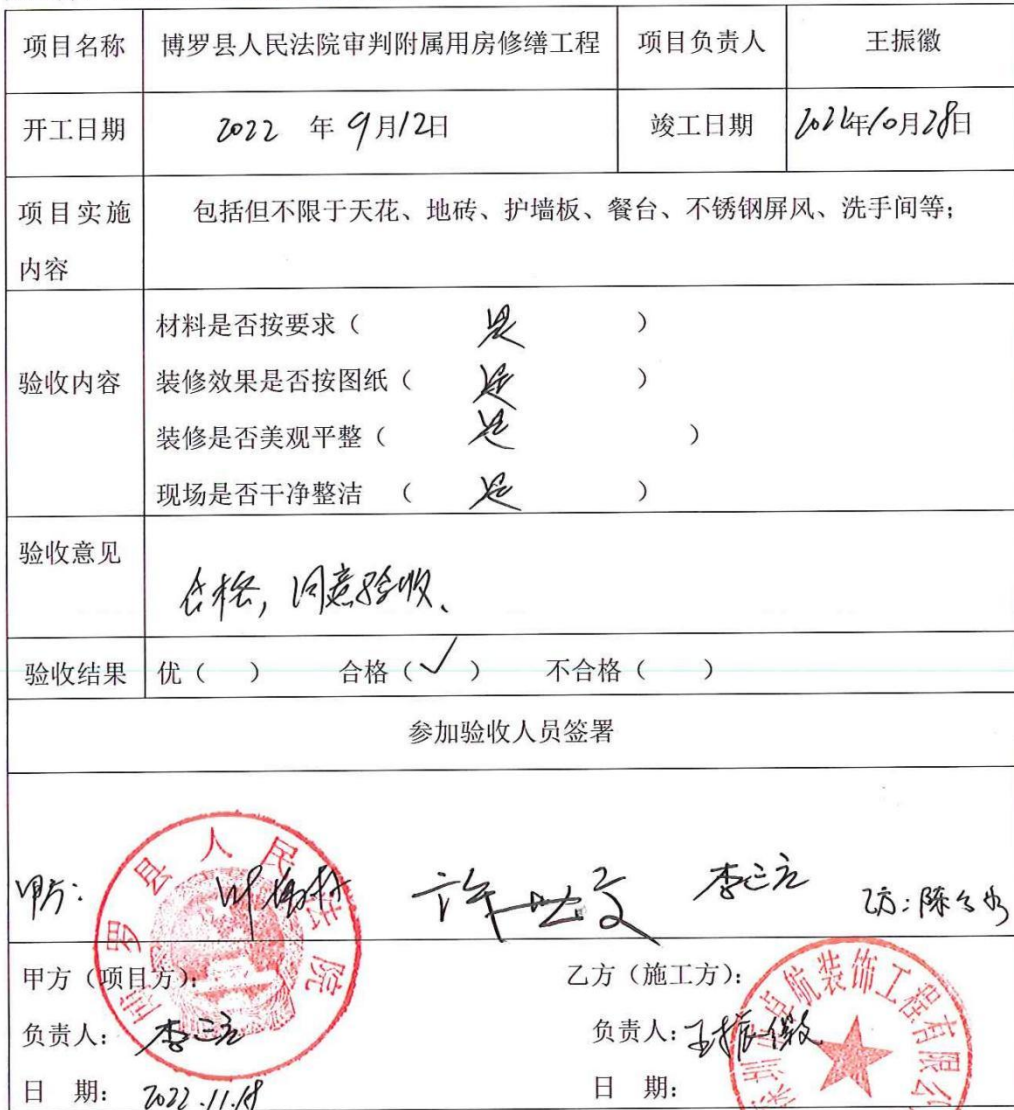 项目名称 博罗县人民法院审判附属用房修缮工程 项目负责人 王振徽
开工日期 2022 年 9月12日 竣工日期 2022年10月28日
项目实施 包括但不限于天花、地砖、护墙板、餐台、不锈钢屏风、洗手间等;
内容
材料是否按要求( 是 )
验收内容 装修效果是否按图纸( 是 )
装修是否美观平整( 是 )
现场是否干净整洁 ( 是 )
验收意见
合格, 同意验收、
验收结果 优( ) 合格(✓) 不合格( )
参加验收人员签署
甲方: 乙方:
博罗县人民法院
甲方(项目方): 乙方(施工方):
负责人: 负责人: 王振徽
日 期: 2022.11.18 日 期:
航装饰工程有限公